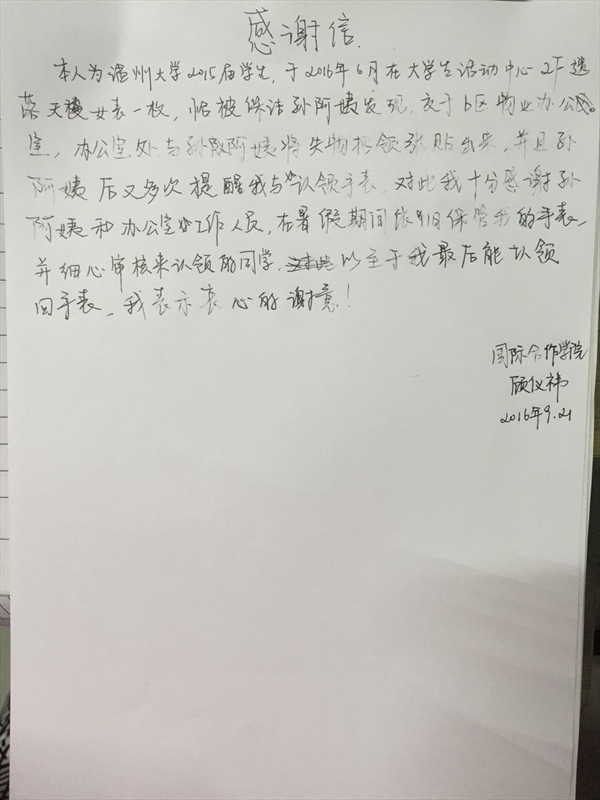 感谢信.
本人为温州大学2015届学生，于2016年6月在大学生活动中心2F遗
落天梭女表一枚，恰被保洁孙阿姨发现，交于B区物业办公
室，办公室处与孙阿姨将失物招领张贴出来，并且孙
阿姨后又多次提醒我与认领手表，对此我十分感谢孙
阿姨和办公室工作人员，在暑假期间依旧保管我的手表，
并细心审核来认领的同学，以至于我最后能认领
回手表，我表示衷心的谢意！
国际合作学院
顾仪祎
2016年9.21